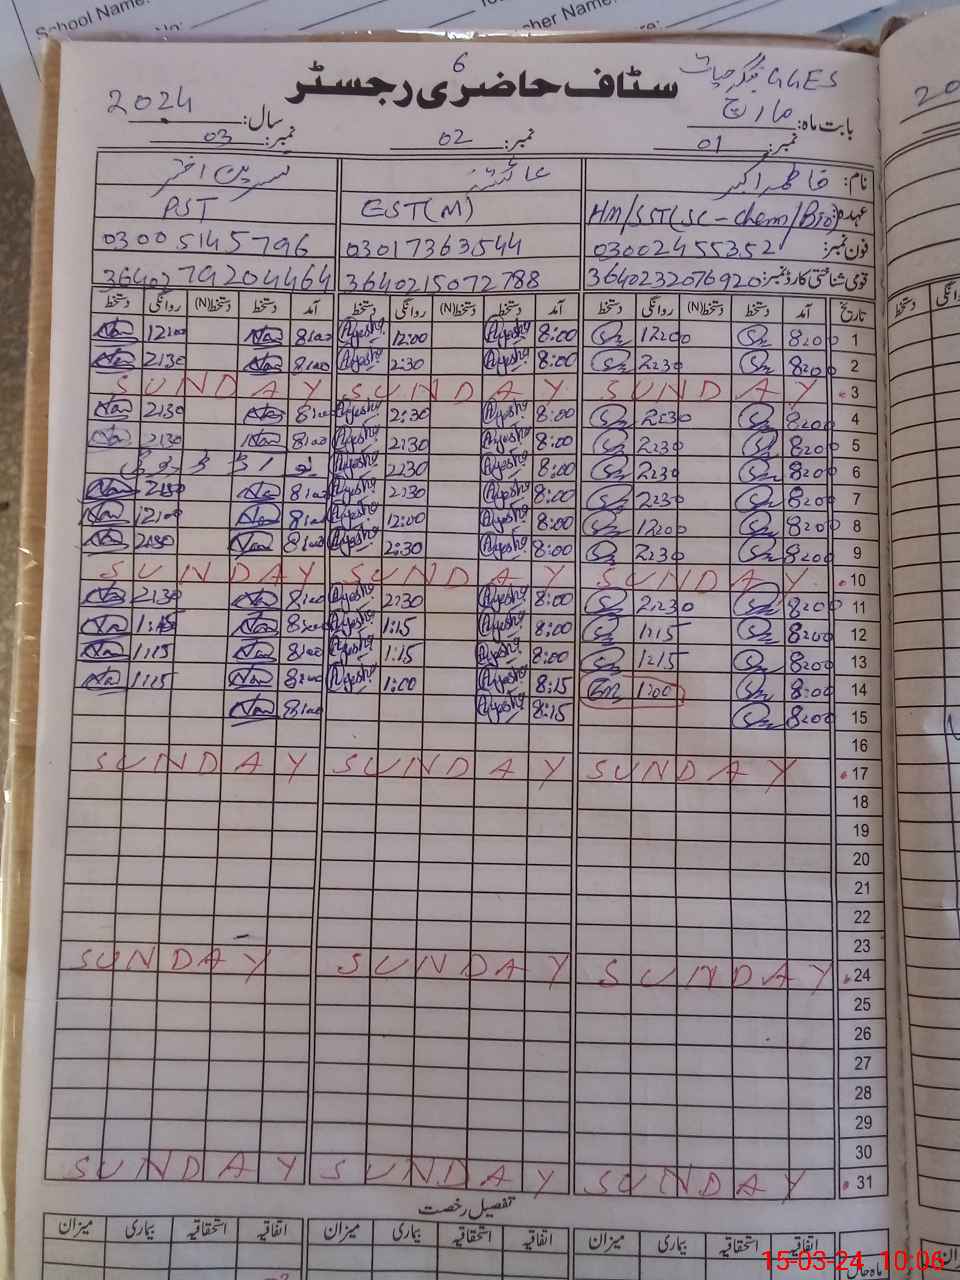 School Name:
cher Name:
6
سٹاف حاضری رجسٹر
GGES
بابت ماہ: مارچ
سال: 2024
20
نمبر: 01
نمبر: 02
نمبر: 03
نام: فاطمہ اکبر
عائشہ
نسرین اختر
عہدہ: HM/SST(SC-chem/Bio)
EST(M)
PST
فون نمبر: 03002455352
03017363544
03005145796
قومی شناختی کارڈ نمبر: 3640232076920
3640215072788
3640279204464
تاریخ آمد دستخط دستخط(N) روانگی دستخط آمد دستخط دستخط(N) روانگی دستخط آمد دستخط دستخط(N) روانگی دستخط
1 8:00 12:00 8:00 Ayesha 12:00 Ayesha 8:00 12:00
2 8:00 2:30 8:00 Ayesha 2:30 Ayesha 8:00 2:30
3 SUNDAY SUNDAY SUNDAY
4 8:00 2:30 8:00 Ayesha 2:30 Ayesha 8:00 2:30
5 8:00 2:30 8:00 Ayesha 2:30 Ayesha 8:00 2:30
6 8:00 2:30 8:00 Ayesha 2:30 Ayesha
7 8:00 2:30 8:00 Ayesha 2:30 Ayesha 8:00 2:30
8 8:00 12:00 8:00 Ayesha 12:00 Ayesha 8:00 12:00
9 8:00 2:30 8:00 Ayesha 2:30 Ayesha 8:00 2:30
10 SUNDAY SUNDAY SUNDAY
11 8:00 2:30 8:00 Ayesha 2:30 Ayesha 8:00 2:30
12 8:00 1:15 8:00 Ayesha 1:15 Ayesha 8:00 1:15
13 8:00 1:15 8:00 Ayesha 1:15 Ayesha 8:00 1:15
14 8:00 1:00 8:15 Ayesha 1:00 Ayesha 8:00 1:15
15 8:00 8:15 Ayesha 8:00
16
17 SUNDAY SUNDAY SUNDAY
18
19
20
21
22
23
24 SUNDAY SUNDAY SUNDAY
25
26
27
28
29
30
31 SUNDAY SUNDAY SUNDAY
تفصیل رخصت
اتفاقیہ استحقاقیہ بیماری میزان اتفاقیہ استحقاقیہ بیماری میزان اتفاقیہ استحقاقیہ بیماری میزان
ماہ حال
15-03-24 10:06